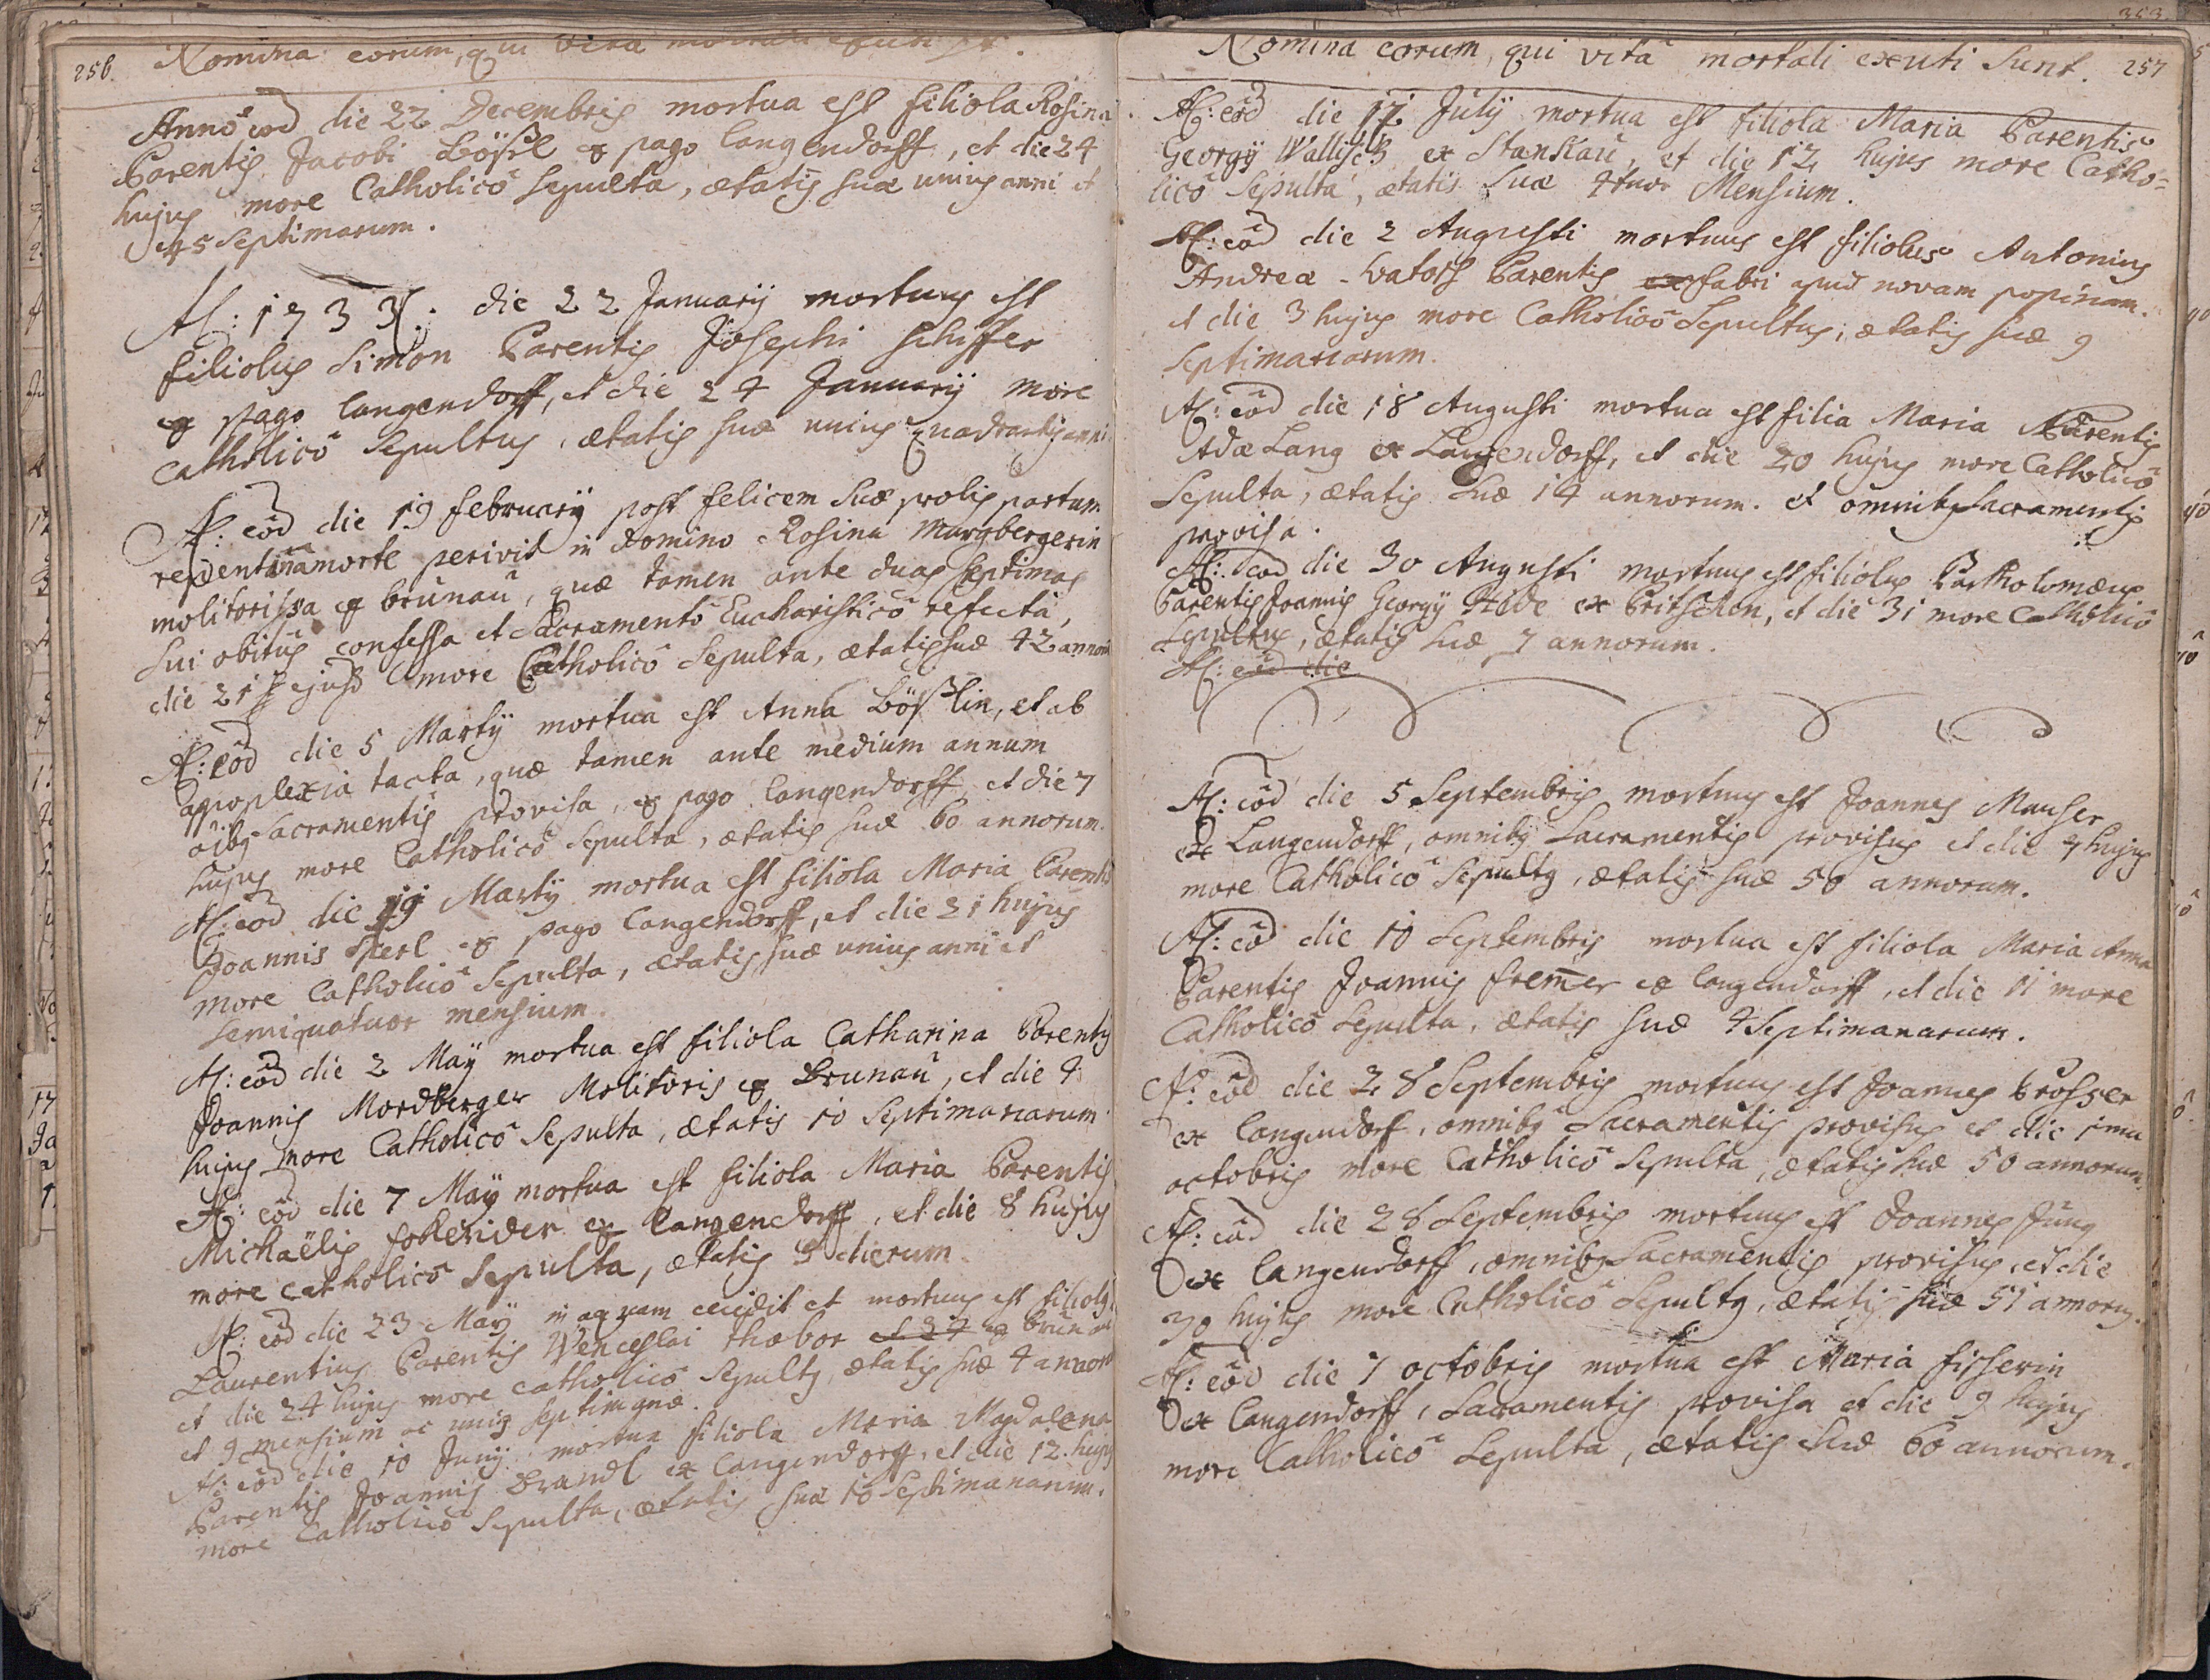 256. Nomina eorum, qui vita mortali exuti st.
Anno eod die 22 Decembris mortua est filiola Rosina
Parentis Jacobi Bößl ex pago Langendorff, et die 24
hujus more Catholico sepulta, ætatis suæ unius anni et
45 septimarum.
A: 1733. die 22 Januarij mortuus est
filiolus Simon Parentis Josephi Schiffer
ex pago Langendorff, et die 24 Januarij more
catholico sepultus, ætatis suæ unius quadrantis anni.
A: eod die 19 february post felicem suæ prolis partum
repentina morte perivit in Domino Rosina Margbergerin
molitorissa ex brunau, quæ tamen ante duas septimas
sui obitus confessa et Sacramento Eucharistico refecta,
die 21 ejusd more Catholico sepulta, ætatis suæ 42 annorū
A: eod die 5 Martij mortua est Anna Bößlin, et ab
appoplexia tacta, quæ tamen ante medium annum
oibq Sacramentis provisa, ex pago Langendorff, et die 7
hujus more Catholico sepulta, ætatis suæ 60 annorum.
A: eod die 19 Martij mortua est filiola Maria Parentis
Joannis Sperl ex pago Langendorff, et die 21 hujus
more Catholico sepulta, ætatis suæ unius anni et
semiquatuor mensium.
A: eod die 2 Maij mortua est filiola Catharina Parentis
Joannis Mordberger Molitoris ex Brunau, et die 4
hujus more Catholico sepulta, ætatis 10 septimanarum
A: eod die 7 Maij mortua est filiola Maria Parentis
Michaëlis fokerider ex Langendorff, et die 8 hujus
more catholico sepulta, ætatis 3 dierum.
A: eod die 23 Maij in aquam cecidit et mortuus est filiolq
Laurentius Parentis Wenceslai Thabor et 24 ex brunau
et die 24 hujus more catholico sepultq, ætatis suæ 4 annorū
et 9 mensium ac unius septimanæ.
A: eod die 10 Junij mortua filiola Maria Magdalena
Parentis Joannis Brandl ex Langendorff, et die 12. hujus
more Catholico sepulta, ætatis suæ 10 septimanarum.
353
Nomina eorum, qui vitā mortali exuti sunt. 257
A: eod die 12 Julij mortua est filiola Maria Parentis
Georgij Wallisch ex Stankau, et die 12 hujus more Catho=
lico Sepulta, ætatis suæ 4tuor Mensium.
A: eod die 2 Augusti mortuus est filiolus Antonius
Andreæ Watosch Parentis ex fabri apud novam popinam.
et die 3 hujus more Catholico Sepultus, ætatis suæ 9
septimanarum.
A: eod die 18 Augusti mortua est filia Maria Parentis
Adæ Lang ex Langendorff, et die 20 hujus more Catholico
Sepulta, ætatis suæ 14 annorum. et omnibq Sacramentis
provisa.
A: eod die 30 Augusti mortuus est filiolus Bartholomæus
Parentis Joannis Georgij ex Pritschen, et die 31 more Catholico
Sepultus, ætatis suæ 7 annorum.
A: eod die
A: eod die 5 Septembris mortuus est Joannes Mauser
ex Langendorff, omnibq Sacramentis provisus et die 7 hujus
more Catholico Sepultq, ætatis suæ 50 annorum.
A: eod die 10 Septembris mortua est filiola Maria Anna
Parentis Joannis Frem̄er ex Langendorff, et die 11 more
Catholico Sepulta, ætatis suæ 4 Septimanarum.
A: eod die 28 Septembris mortuus est Joannes Brosser
ex Langendorf, omnibq Sacramentis provisus et die 1ma
octobris more Catholico Sepulta, ætatis suæ 50 annorum.
A: eod die 28 Septembris mortuus est Joannes Jung
ex Langendorff, omnibq Sacramentis provisus, et die
30 hujus more Catholico Sepultq, ætatis suæ 51 annorū.
A: eod die 7 octobris mortua est Maria Fisserin
ex Langendorff, Sacramentis provisa et die 9 hujus
more Catholico Sepulta, ætatis suæ 60 annorum.